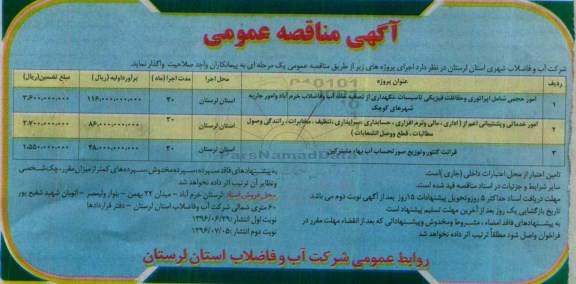 آگهی مناقصه عمومی
شرکت آب و فاضلاب شهری استان لرستان در نظر دارد اجرای پروژه های زیر از طریق مناقصه عمومی یک مرحله ای به پیمانکاران واجد صلاحیت واگذار نماید.
ردیف عنوان پروژه محل اجرا مدت اجرا (ماه) برآورد اولیه (ریال) مبلغ تضمین (ریال)
۱ امور حجمی شامل اپراتوری و حفاظت فیزیکی تاسیسات، نگهداری از تصفیه خانه آب وفاضلاب خرم آباد وامور جاریه شهرهای کوچک استان لرستان ۲۰ ۱۱۶،۰۰۰،۰۰۰،۰۰۰ ۳،۶۰۰،۰۰۰،۰۰۰
۲ امور خدماتی وپشتیبانی اعم از (اداری ، مالی ونرم افزاری ، حسابداری ،سرایداری، تنظیف ، مخابرات ، رانندگی وصول مطالبات ، قطع ووصل انشعابات) استان لرستان ۲۰ ۸۶،۰۰۰،۰۰۰،۰۰۰ ۲،۷۰۰،۰۰۰،۰۰۰
۳ قرائت کنتور وتوزیع صورتحساب آب بهاء مشترکین استان لرستان ۲۰ ۴۸،۰۰۰،۰۰۰،۰۰۰ ۱،۵۵۰،۰۰۰،۰۰۰
تامین اعتبار از محل اعتبارات داخلی (جاری) است.
سایر شرایط و جزئیات در اسناد مناقصه قید شده است.
مهلت دریافت اسناد حداکثر ۵ روز وتحویل پیشنهادات ۱۵روز بعد از آگهی نوبت دوم می باشد
تاریخ بازگشایی یک روز بعد از آخرین مهلت تسلیم پیشنهاد است.
به پیشنهادهای فاقد امضاء ، مشروط ومخدوش وپیشنهاداتی که بعد از انقضاء مهلت مقرر در فراخوان واصل شود مطلقاً ترتیب اثر داده نخواهد شد
به پیشنهادهای فاقد سپرده،سپرده مخدوش،سپرده های کمتر از میزان مقرر ، چک شخصی ونظایر آن ترتیب اثر داده نخواهد شد
محل فروش اسناد : لرستان خرم آباد – میدان ۲۲ بهمن – بلوار ولیعصر – اتوبان شهید شفیع پور
۶۰ متری شمالی شرکت آب وفاضلاب استان لرستان – دفتر قراردادها
نوبت اول انتشار :۱۳۹۶/۰۶/۲۹
نوبت دوم انتشار :۱۳۹۶/۰۷/۰۵
روابط عمومی شرکت آب و فاضلاب استان لرستان